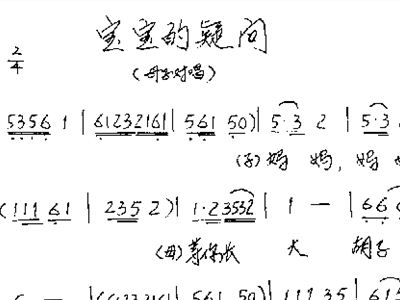 宝宝的疑问
2/4
(母子对唱)
5356 1 | 61232161 | 5 61 50) | 5·3 2 | 5·3
(子)妈 妈, 妈
(111 61 | 235 2) | 1·2 3532 | 1 — | 66
(母)等你长 大 胡子
6 — | (61232161 | 561 50) | 111 35 | 61